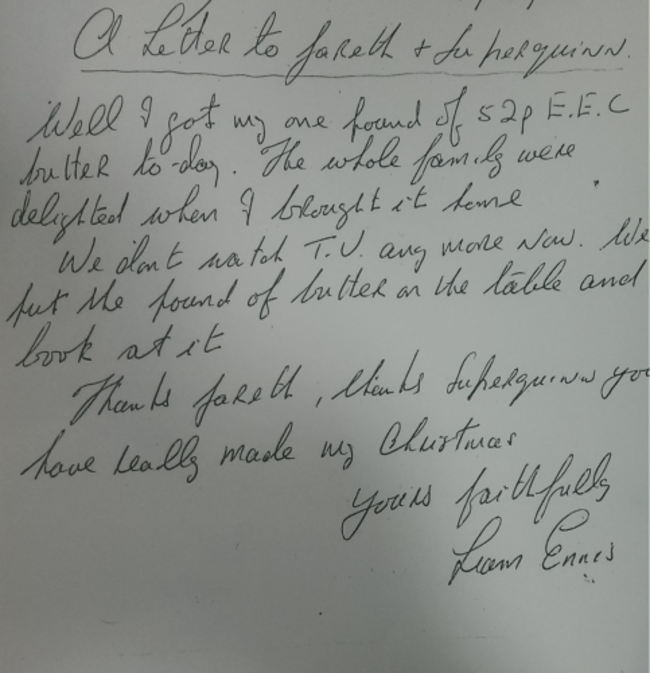 A Letter to Gareth + Superquinn.
Well I got my one pound of 52p E.E.C
butter to-day. The whole family were
delighted when I brought it home
We dont watch T.V. any more now. We
put the pound of butter on the table and
look at it
Thanks Gareth, thanks Superquinn you
have really made my Christmas
Yours faithfully
Liam Ennis